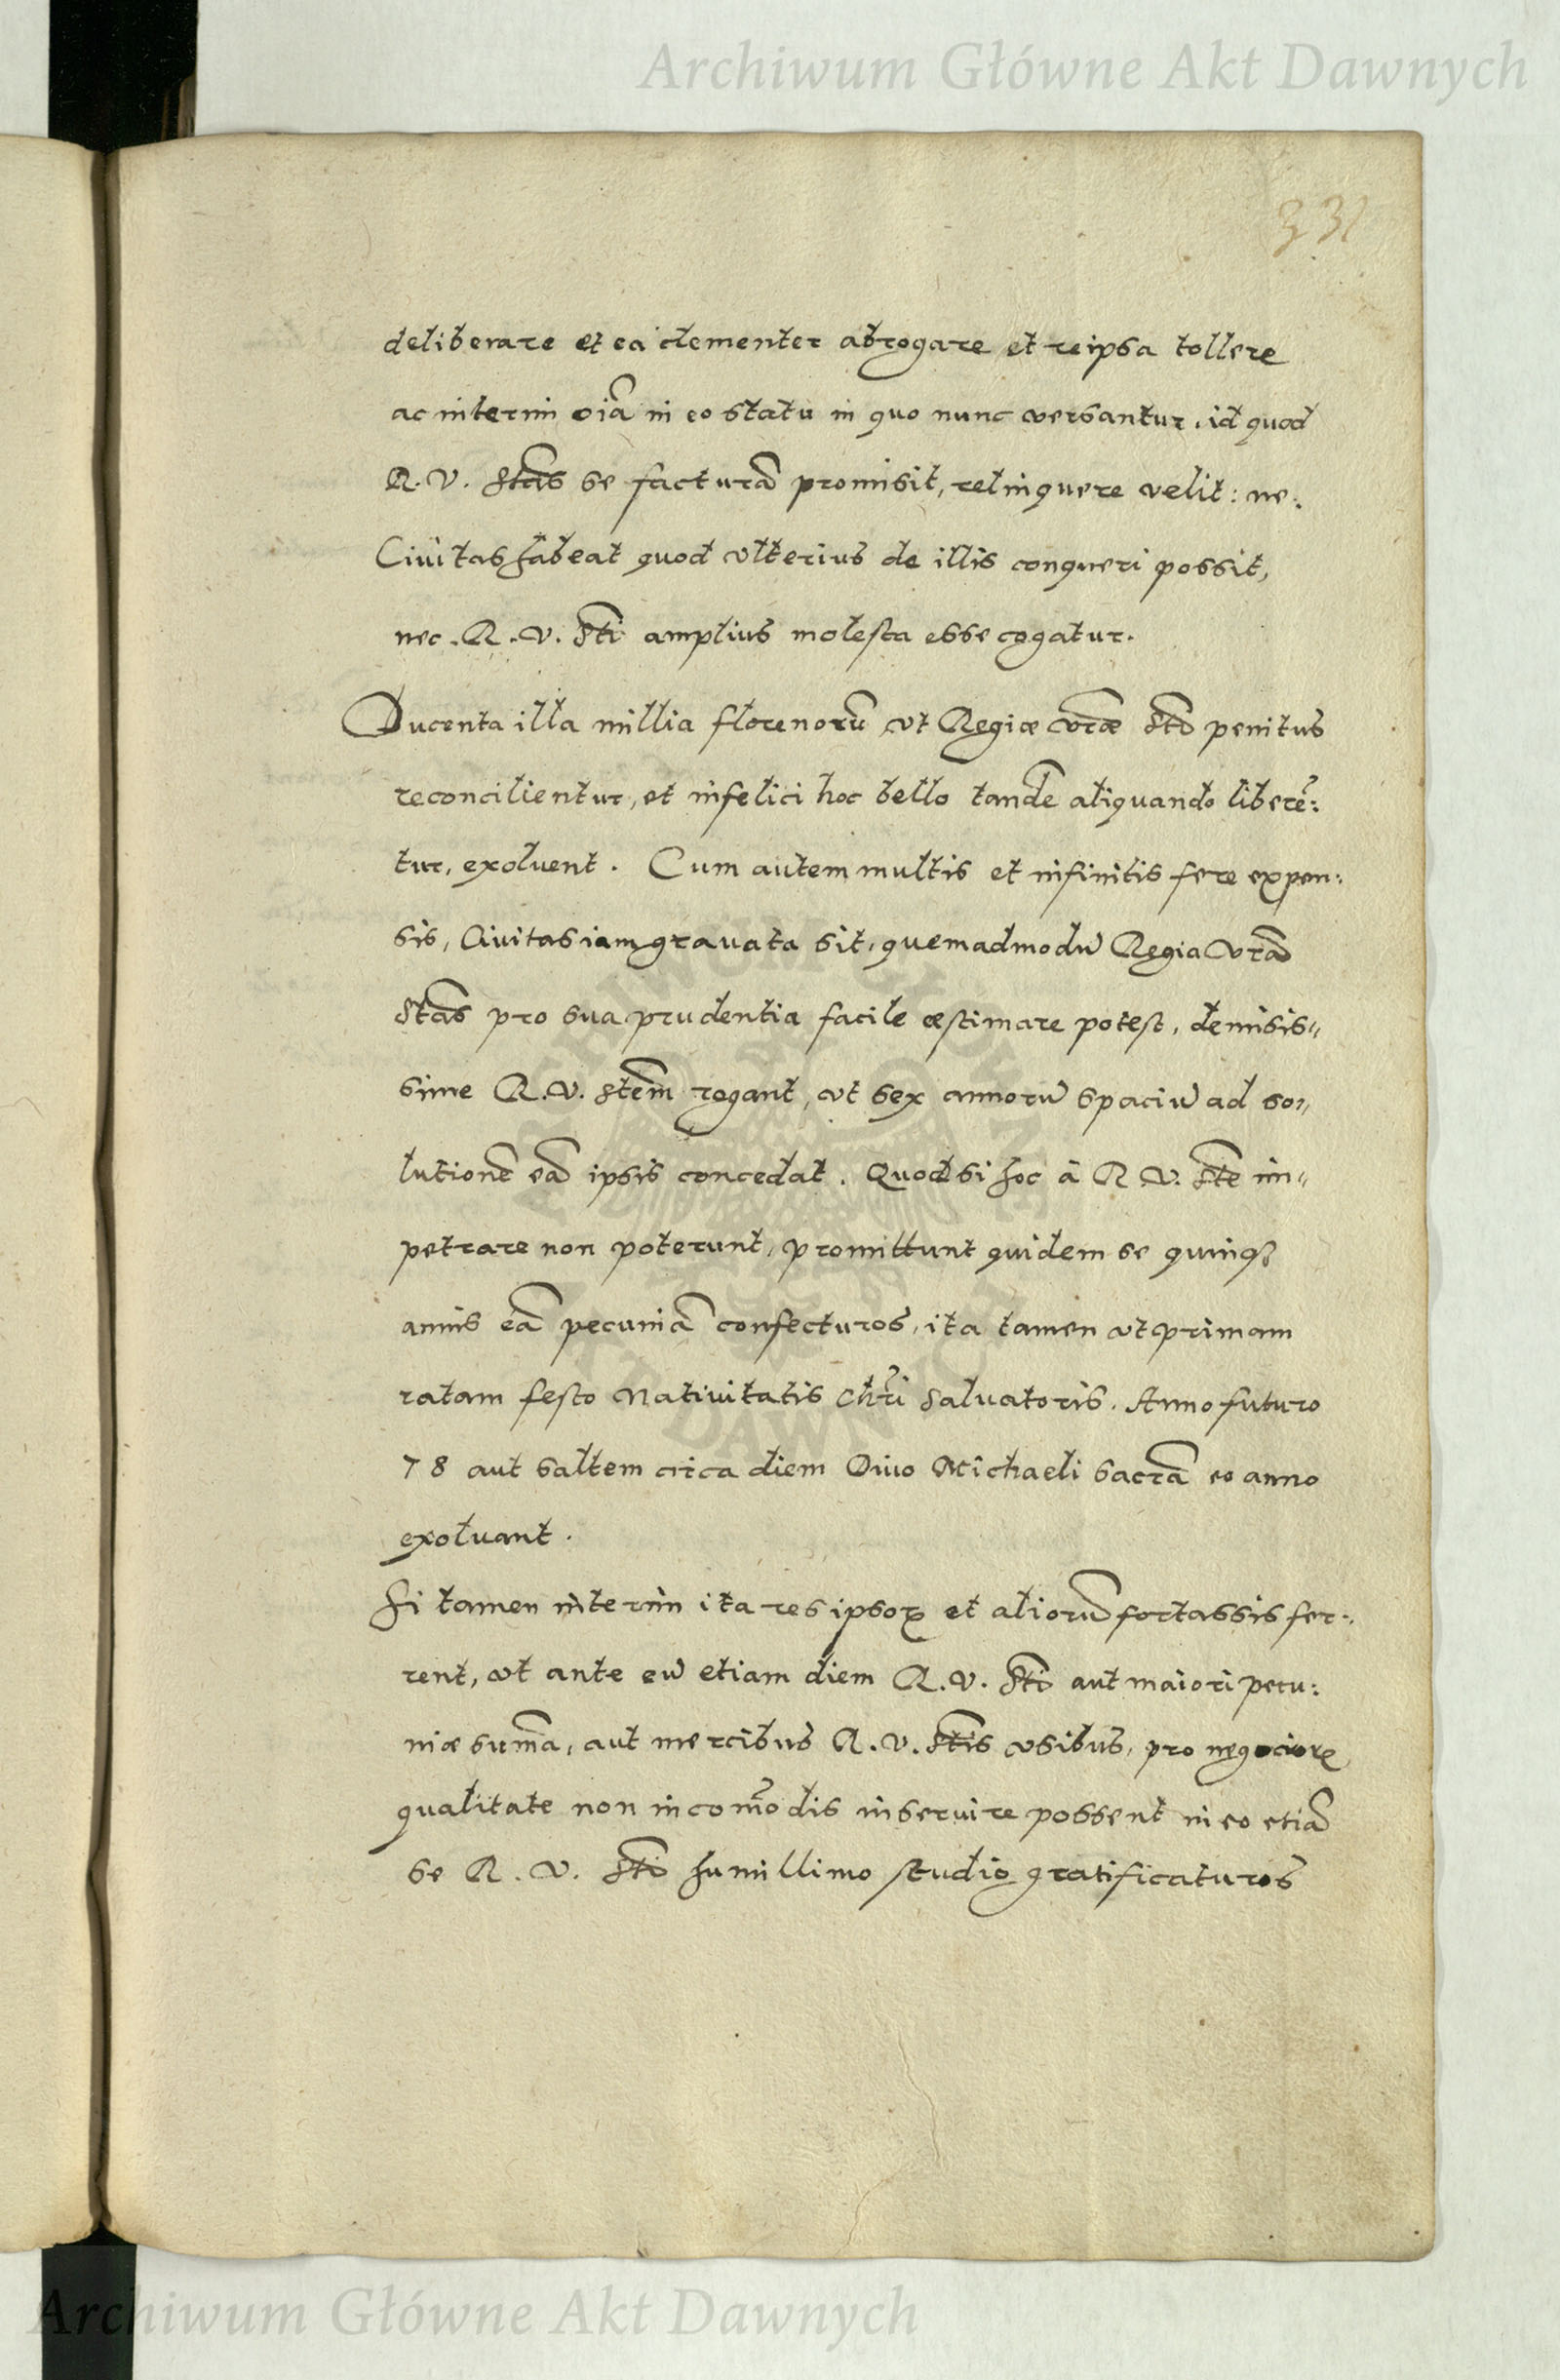 Archiwum Główne Akt Dawnych
331
deliberare et ea clementer abrogare et reipsa tollere
ac interim oīā in eo statu in quo nunc versantur, id quod
R. V. Stās se facturā promisit, relinquere velit: ne:
Civitas habeat quod ulterius de illis conqueri possit,
nec R. V. Sti amplius molesta esse cogatur.
Ducenta illa millia florenorū, ut Regiæ vræ Sti penitus
reconcilientur, et infelici hoc bello tandē aliquando liberē:
tur, exolvent. Cum autem multis et infinitis fere expen:
sis, Civitas iam gravata sit, quemadmodū Regia vrā
Stās pro sua prudentia facile æstimare potest, demisis„
sime R. V. Stem rogant, ut sex annorū spaciū ad so„
lutionē eā ipsis concedat. Quod si hoc à R V. Ste im„
petrare non poterunt, promittunt quidem se quinq3
annis eā pecuniā confecturos, ita tamen ut primam
ratam festo Nativitatis Chri Salvatoris. Anno futuro
78 aut saltem circa diem Divo Michaeli sacrā eo anno
exolvant.
Si tamen interim ita res ipsoꝝ et aliorū fortassis fer:
rent, ut ante eū etiam diem R. V. Sti aut maiori pecu:
niæ sum̄a, aut mercibus R. V. Stis usibus, pro negocioꝝ
qualitate non incom̄odis inservire possent in eo etiā
se R. V. Sti humillimo studio gratificaturos
Archiwum Główne Akt Dawnych